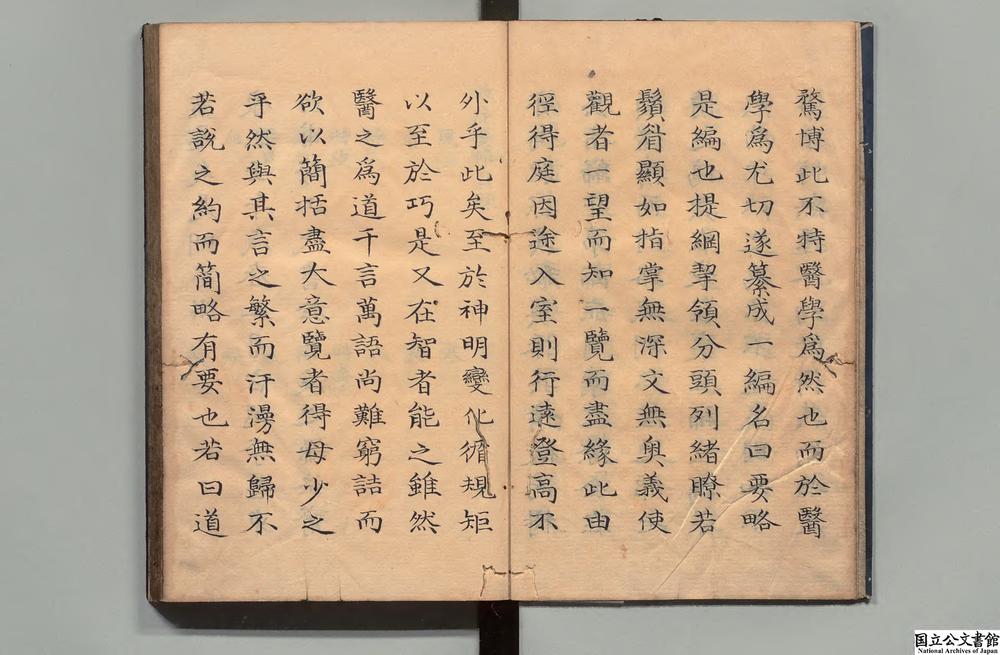 騖博此不特醫學爲然也而於醫
學爲尤切遂纂成一編名曰要略
是編也提綱挈領分頭列緒瞭若
鬚眉顯如指掌無深文無奥義使
觀者一望而知一覽而盡緣此由
徑得庭因途入室則行遠登高不
外乎此矣至於神明變化循規矩
以至於巧是又在智者能之雖然
醫之爲道千言萬語尚難窮詰而
欲以簡括盡大意覽者得毋少之
乎然與其言之繁而汗漫無歸不
若説之約而簡略有要也若曰道
国立公文書館
National Archives of Japan